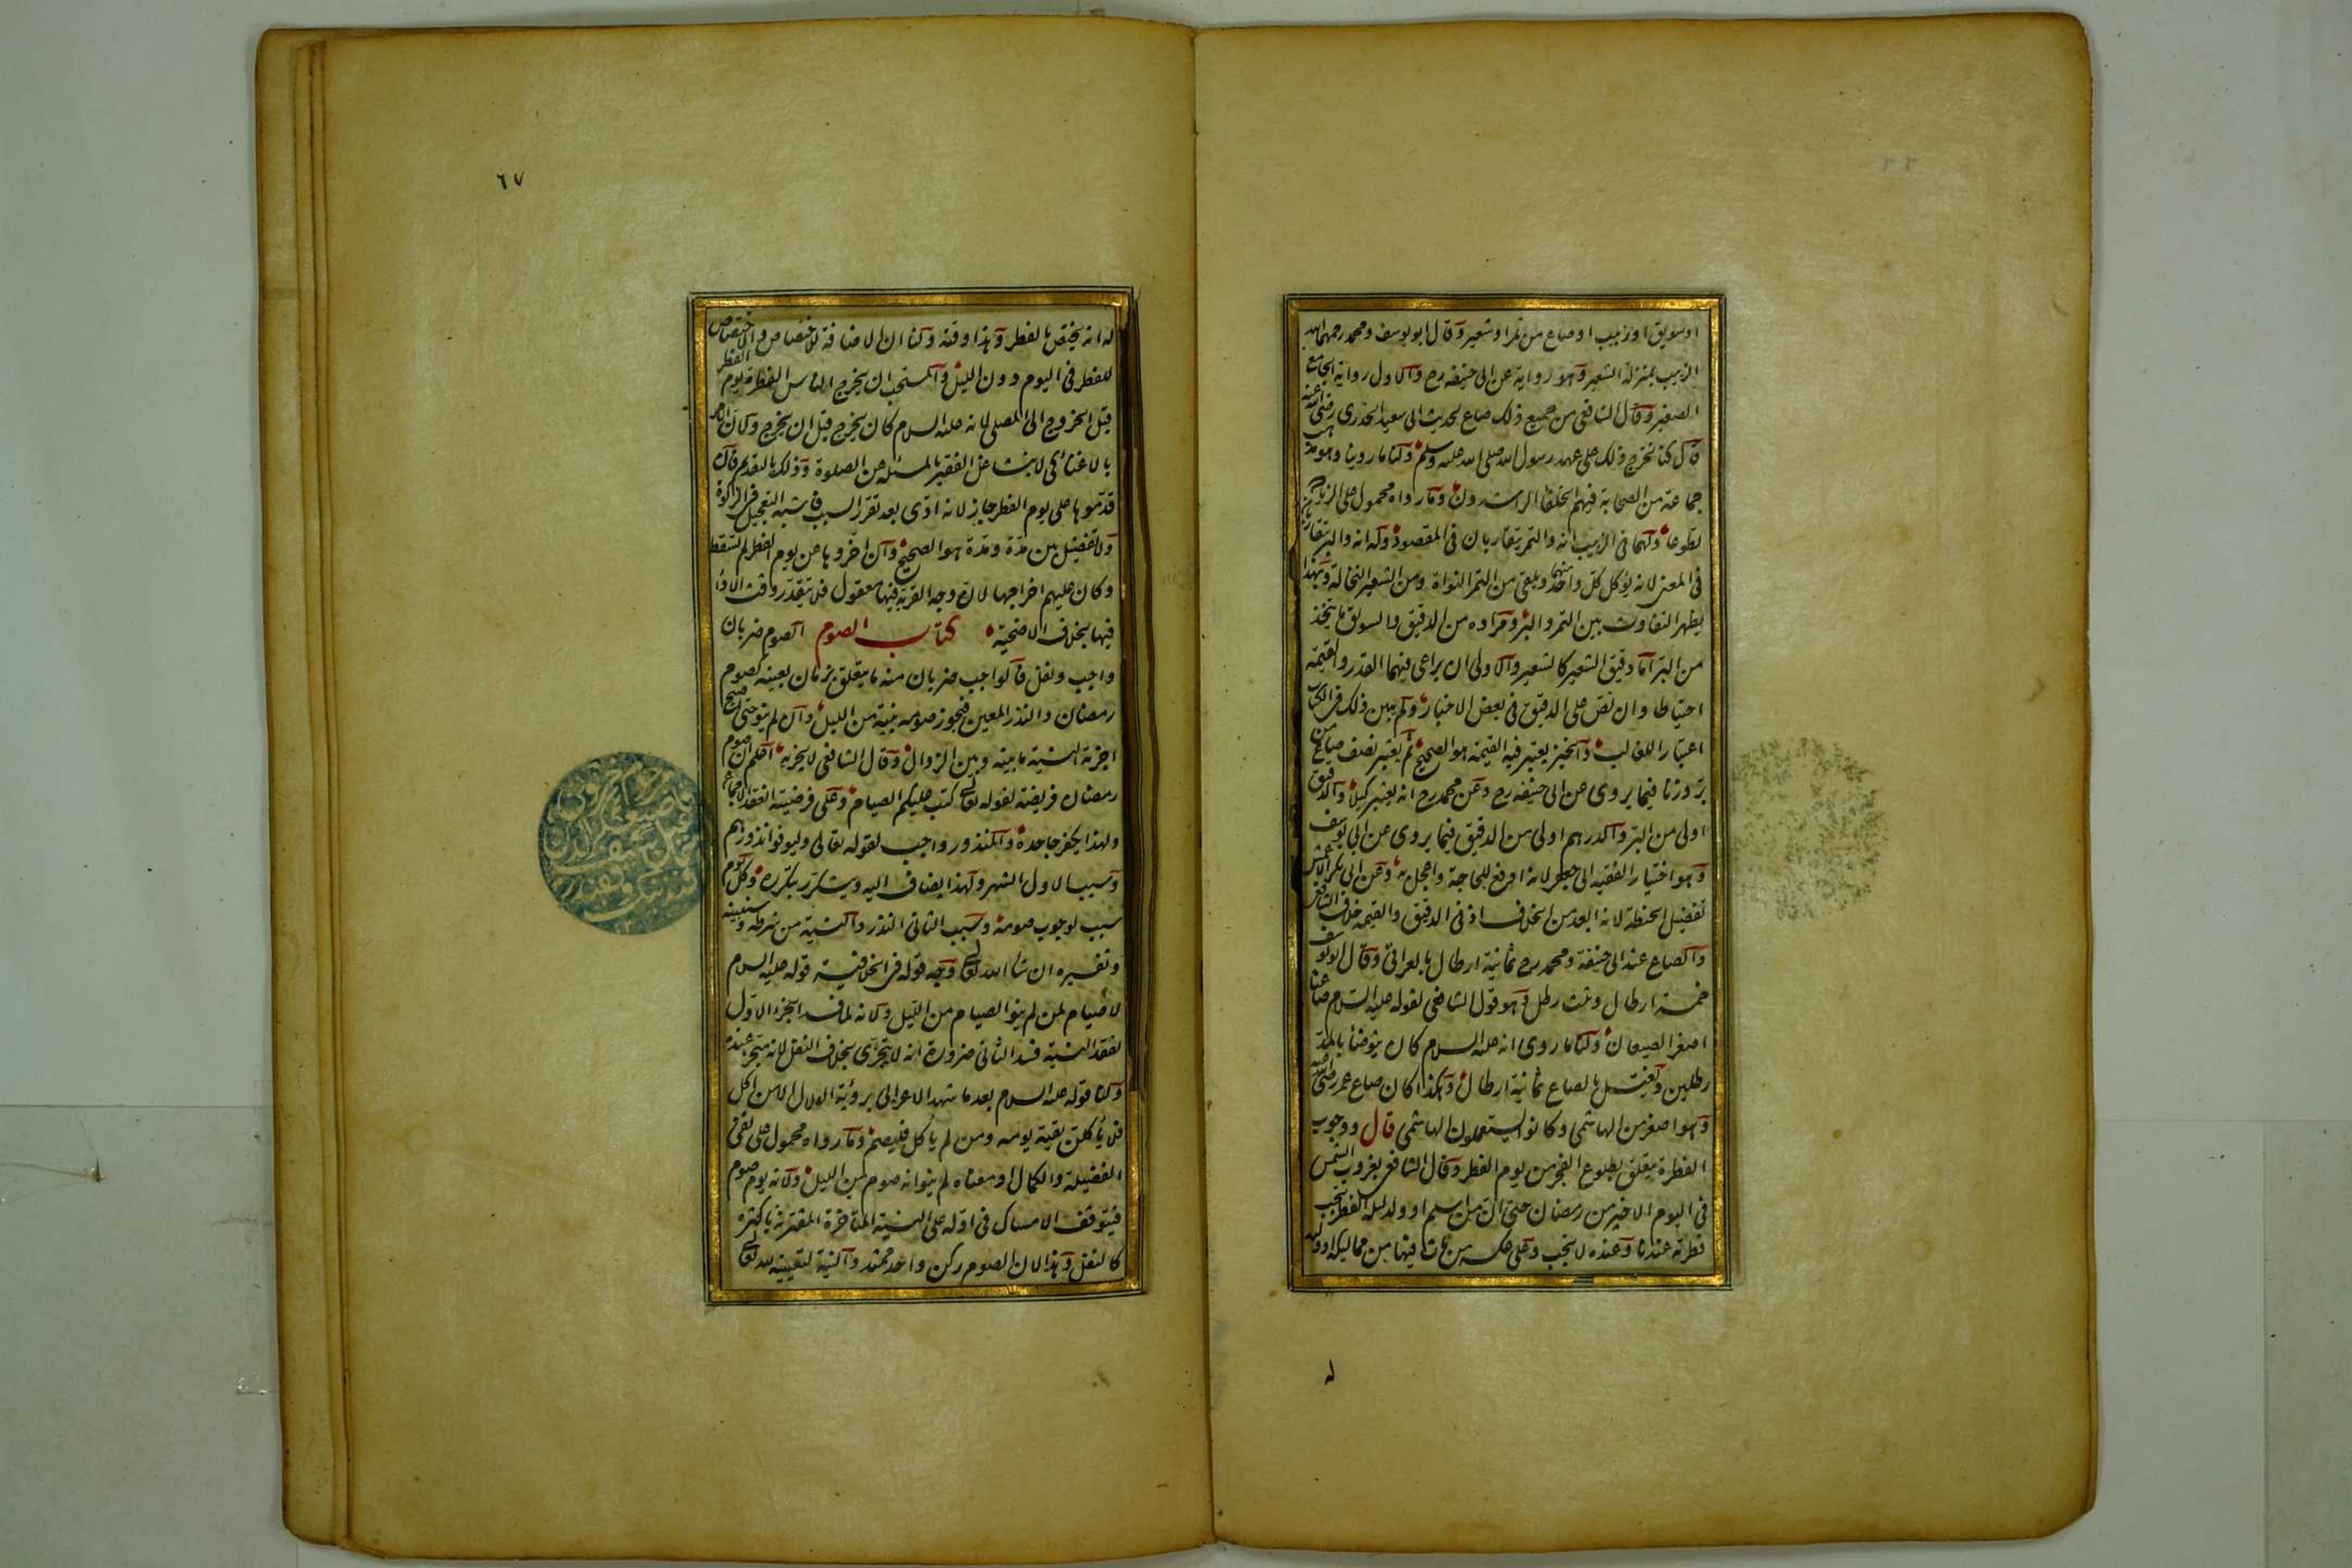 او سويق او زبيب او صاع من تمر او شعير وقال ابو يوسف ومحمد رحمهما الله
الزبيب بمنزلة الشعير وهو رواية عن ابى حنيفه رح والاول رواية الجامع
الصغير وقال الشافعى من جميع ذلك صاع لحديث ابى سعيد الخدرى رضى الله عنه
قال كنا نخرج ذلك على عهد رسول الله صلى الله عليه وسلم ولنا ما روينا وهو مذهب
جماعة من الصحابة فيهم الخلفا الراشدون وما رواه محمول على الزيادة
تطوعا ولهما فى الزبيب انه والتمر يتقاربان فى المقصود وله انه والبر يتقاربان
فى المعنى لانه يؤكل كل واحد منهما ويلقى من التمر النواة ومن الشعير النخالة وبهذا
يظهر التفاوت بين التمر والبر ومراده من الدقيق والسويق ما يتخذ
من البر اما دقيق الشعير كالشعير والاولى ان يراعى فيهما القدر والقيمة
احتياطا وان نص على الدقيق فى بعض الاخبار ولم يبين ذلك فى الكتاب
اعتبارا للغالب والخبز يعتبر فيه القيمة هو الصحيح ثم يعتبر نصف صاع من
بر وزنا فيما يروى عن ابى حنيفه رح وعن محمد رح انه يعتبر كيلا والدقيق
اولى من البر والدراهم اولى من الدقيق فيما يروى عن ابى يوسف
وهو اختيار الفقيه ابى جعفر لانه ادفع للحاجة واعجل به وعن ابى بكر الاعمش
تفضيل الحنطة لانه ابعد من الخلاف اذ فى الدقيق والقيمه خلاف الشافعى
والصاع عند ابى حنيفة ومحمد رح ثمانية ارطال بالعراقى وقال ابو يوسف
خمسة ارطال وثلث رطل وهو قول الشافعى لقوله عليه السلام صاعنا
اصغر الصيعان ولنا ما روى انه عليه السلام كان يتوضأ بالمد
رطلين ويغتسل بالصاع ثمانية ارطال وهكذا كان صاع عمر رضى الله عنه
وهو اصغر من الهاشمى وكانوا يستعملون الهاشمى قال ووجوب
الفطرة يتعلق بطلوع الفجر من يوم الفطر وقال الشافعى بغروب الشمس
فى اليوم الاخير من رمضان حتى ان من اسلم او ولد ليلة الفطر تجب
فطرته عندنا وعنده لا تجب وعلى عكسه من مات فيها من مماليكه او ولده
له
٦٧
له انه يختص بالفطر وهذا وقته ولنا ان الاضافة للاختصاص والاختصاص
للفطر فى اليوم دون الليل والمستحب ان يخرج الناس الفطرة يوم الفطر
قبل الخروج الى المصلى لانه عليه السلام كان يخرج قبل ان يخرج ولان الامر
بالاغناء كى لا يتشاغل الفقير بالمسئلة عن الصلوة وذلك بالتقديم فان
قدموها على يوم الفطر جاز لانه ادى بعد تقرر السبب فاشبه التعجيل فى الزكوة
ولا تفضيل بين مدة ومدة هو الصحيح وان اخروها عن يوم الفطر لم تسقط
وكان عليهم اخراجها لان وجه القربة فيها معقول فلا يتقدر وقت الاداء
فيها بخلاف الاضحية كتاب الصوم الصوم ضربان
واجب ونفل فالواجب ضربان منه ما يتعلق بزمان بعينه كصوم
رمضان والنذر المعين فيجوز صومه بنية من الليل وان لم ينو حتى اصبح
اجزته النية ما بينه وبين الزوال وقال الشافعى لا يجزيه اعلم ان صوم
رمضان فريضة لقوله تعالى كتب عليكم الصيام وعلى فرضيته انعقد الاجماع
ولهذا يكفر جاحده والمنذور واجب لقوله تعالى وليوفوا نذورهم
وسبب الاول الشهر ولهذا يضاف اليه ويتكرر بتكرره وكل يوم
سبب لوجوب صومه وسبب الثانى النذر والنية من شرطه وسنبينه
وتفسيره ان شاء الله تعالى وجه قوله فى الخلافية قوله عليه السلام
لا صيام لمن لم ينو الصيام من الليل ولانه لما فسد الجزء الاول
لفقد النية فسد الثانى ضرورة انه لا يتجزى بخلاف النفل لانه متجز عنده
ولنا قوله عليه السلام بعد ما شهد الاعرابى برؤية الهلال الا من اكل
فلا يأكلن بقية يومه ومن لم ياكل فليصم وما رواه محمول على نفى
الفضيلة والكمال او معناه لم ينو انه صوم من الليل ولانه يوم صوم
فيتوقف الامساك فى اوله على النية المتاخرة المقترنة باكثره
كالنفل وهذا لان الصوم ركن واحد ممتد والنية لتعيينه لله تعالى